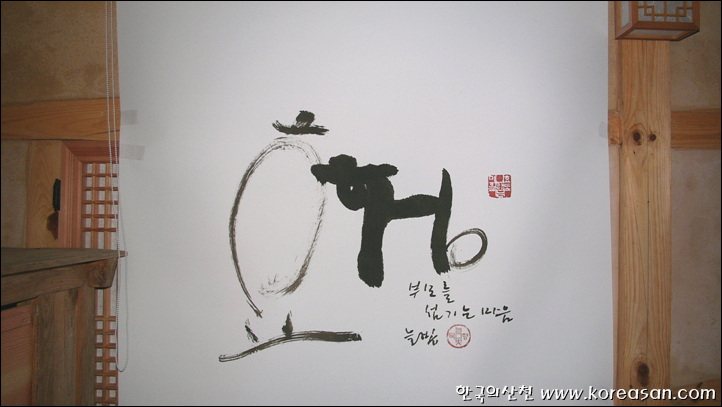 효행
부모를
섬기는 마음
한국의산천 www.koreasan.com